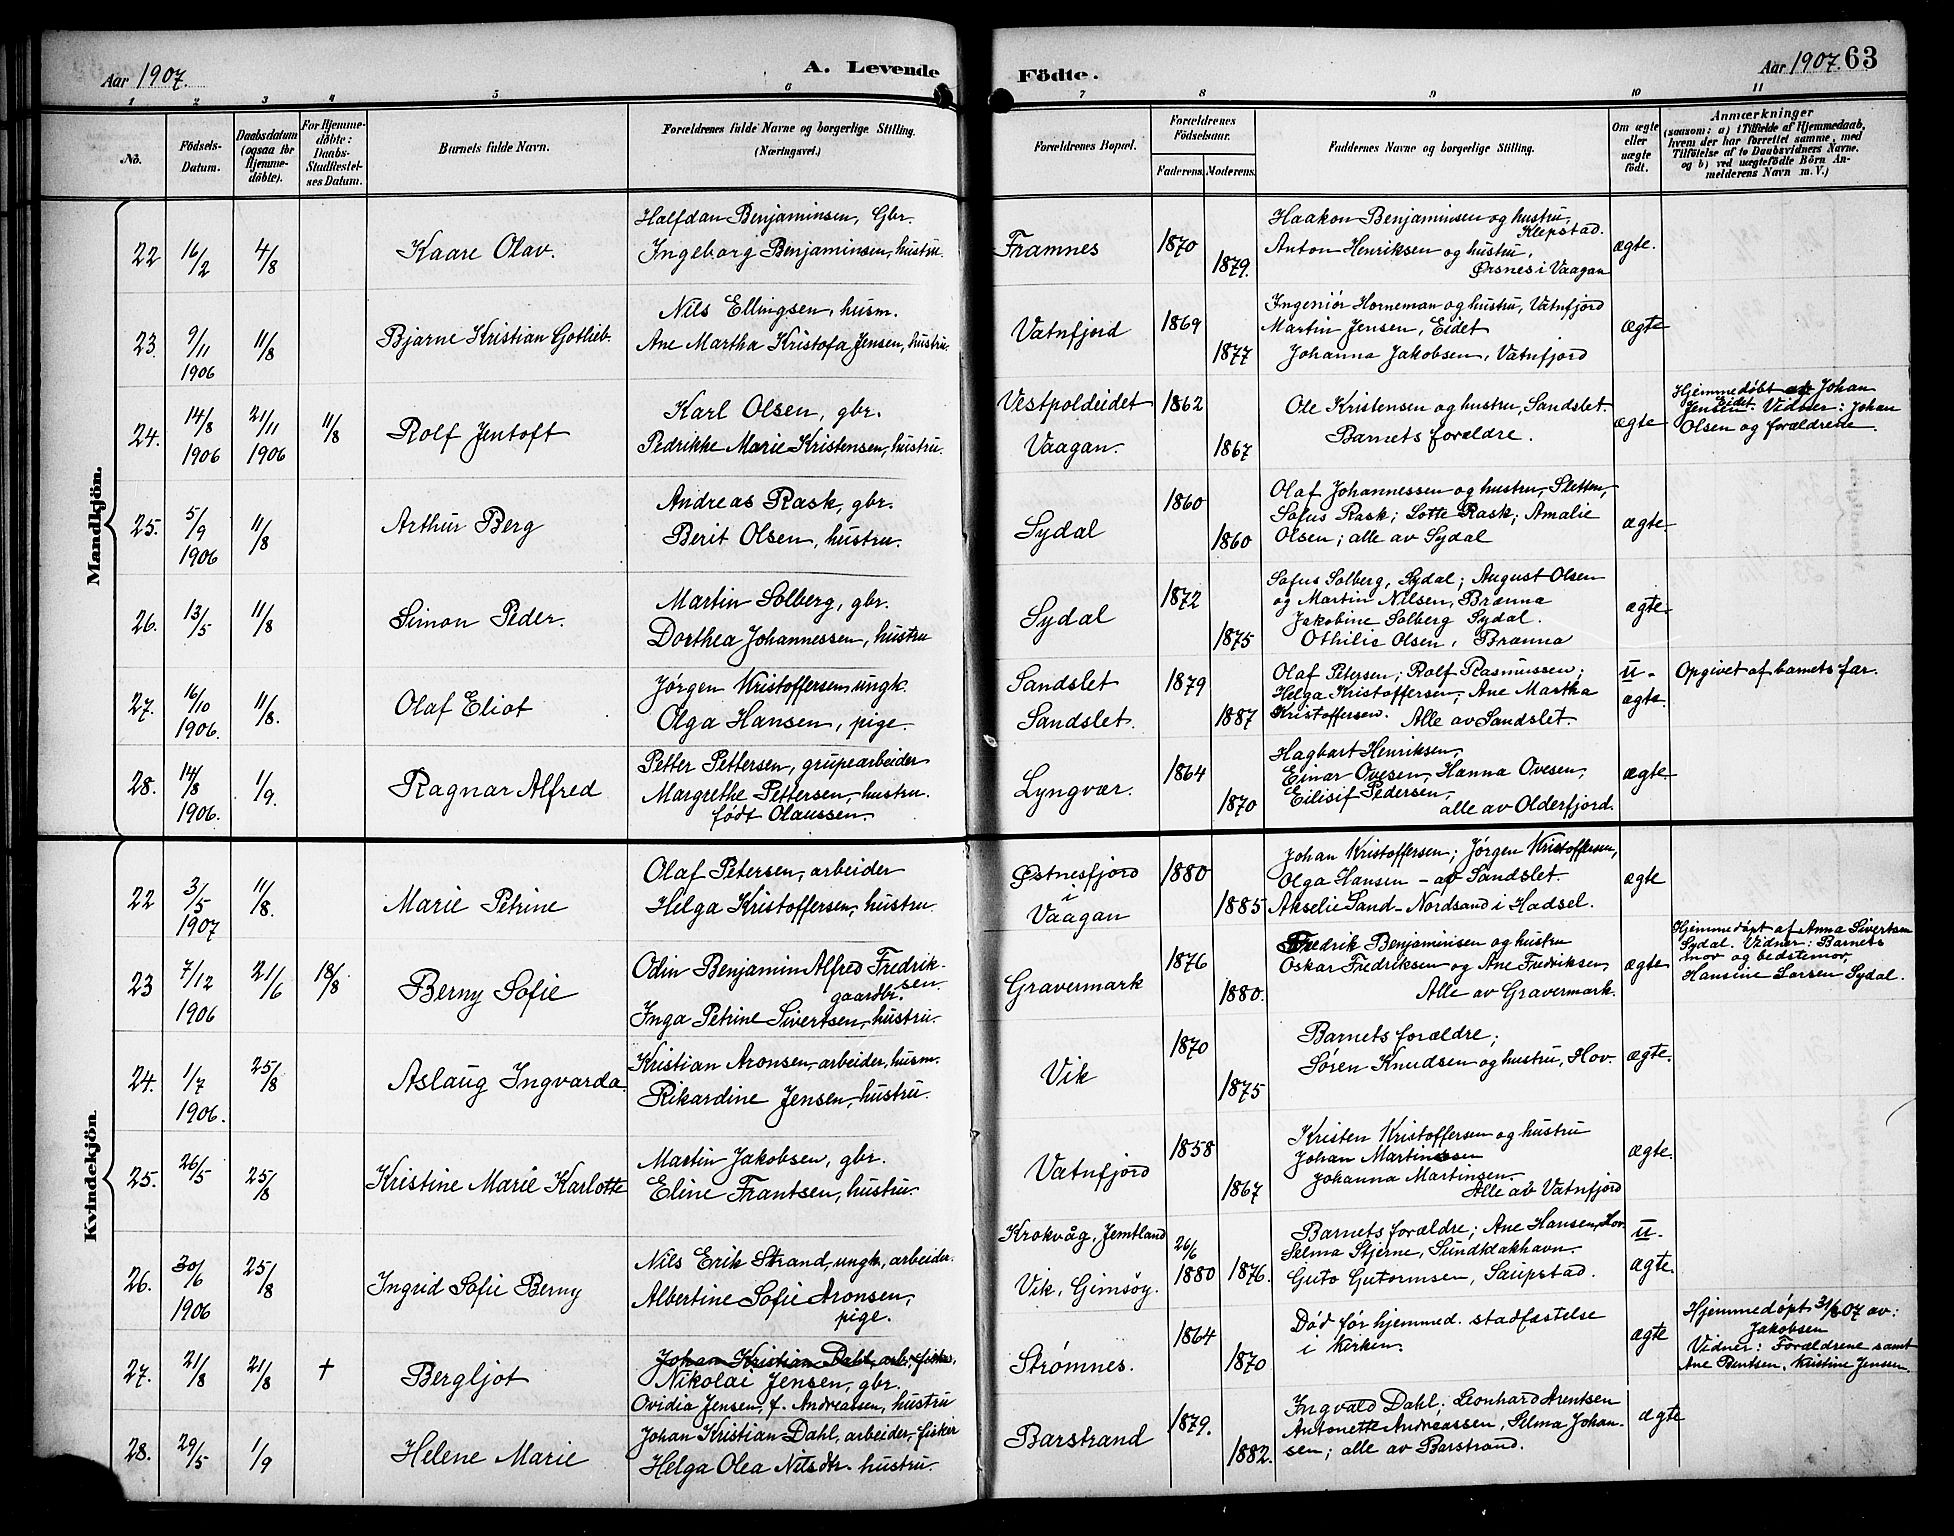 Aar 1907. A. Levende Födte. Aar 1907. 63
1 2 3 4 5 6 7 8 9 10 11
No. Födsels-Datum. Daabsdatum (ogsaa för Hjemme-döbte). For Hjemme-döbte: Daabs-Stadfæstel-ses Datum. Barnets fulde Navn. Forældrenes fulde Navne og borgerlige Stilling. (Næringsvei.) Forældrenes Bopæl. Forældrenes Födselsaar. Faderens. Moderens. Faddernes Navne og borgerlige Stilling. Om ægte eller uægte födt. Anmærkninger (saasom: a) i Tilfælde af Hjemmedaab, hvem der har forrettet samme, med Tilföielse af to Daabsvidners Navne, og b) ved uægtefödte Börn An-melderens Navn m. V.)
Mandkjön.
22 16/2 4/8 Kaare Olav.
Halfdan Benjaminsen, Gbr.
Ingeborg Benjaminsen, hustru.
Framnes 1870 1879.
Haakon Benjaminsen og hustru,
Klepstad.
Anton Henriksen og hustru,
Ørsnes i Vaagan
ægte.
23. 9/11 1906 11/8 Bjarne Kristian Gotlieb.
Nils Ellingsen, husm.
Ane Martha Kristofa Jensen, hustru.
Vatnfjord 1869 1877
Ingeniør Horneman og hustru, Vatnfjord
Martin Jensen, Eidet
Johanna Jakobsen, Vatnfjord
ægte
24. 14/8 1906 21/11 1906 11/8 Rolf Jentoft
Karl Olsen, gbr.
Pedrikke Marie Kristensen, hustru.
Vestpoldeidet
Vaagan. 1862 1867
Ole Kristensen og hustru, Sandslet.
Barnets forældre.
ægte
Hjemmedøbt av Johan
Jensen Eidet. Vidner: Johan
Olsen og forældrene.
25. 5/9 1906 11/8 Arthur Berg
Andreas Rask, gbr.
Berit Olsen, hustru.
Sydal 1860 1860
Olaf Johannessen og hustru, Sletten,
Sofus Rask; Lotte Rask; Amalie
Olsen; alle av Sydal
ægte
26. 13/5 11/8 Simon Peder.
Martin Solberg, gbr.
Dorthea Johannessen, hustru
Sydal 1872 1875
Sofus Solberg, Sydal; August Olsen
og Martin Nilsen, Brænna
Jakobine Solberg Sydal.
Othilie Olsen, Brænna
ægte
27. 16/10 1906. 11/8. Olaf Eliot
Jørgen Kristoffersen, ungk.
Olga Hansen, pige.
Sandslet
Sandslet. 1879 1887
Olaf Petersen; Rolf Rasmussen;
Helga Kristoffersen, Ane Martha
Kristoffersen. Alle av Sandslet.
u-
ægte.
Opgivet af barnets far.
28. 14/8 1906. 1/9. Ragnar Alfred
Petter Pettersen, grupearbeider
Margrethe Pettersen, hustru.
født Olaussen.
Lyngvær. 1864 1870
Hagbart Henriksen,
Einar Ovesen, Hanna Ovesen,
Eilisif Pedersen,
alle av Olderfjord.
ægte
Kvindekjön.
22 3/5 1907 11/8. Marie Petrine
Olaf Petersen, arbeider
Helga Kristoffersen, hustru.
Østnesfjord
i
Vaagan 1880 1885
Johan Kristoffersen; Jørgen Kristoffersen,
Olga Hansen - av Sandslet.
Akselie Sand - Nordsand i Hadsel.
ægte
23 7/12 1906 21/6 18/8 Berny Sofie
Odin Benjamin Alfred Fredrik-
sen.
gaardbr.
Inga Petrine Sivertsen, hustru.
Gravermark 1876 1880.
Fredrik Benjaminsen og hustru
Oskar Fredriksen og Ane Fredriksen,
Alle av Gravermark.
ægte
Hjemmedøpt af Anna Sivertsen
Sydal. Vidner: Barnets
mor og bedstemor,
Hansine Larsen Sydal.
24. 1/7 1906. 25/8 Aslaug Ingvarda
Kristian Aronsen, arbeider, husm.
Rikardine Jensen, hustru.
Vik 1870 1875
Barnets forældre;
Søren Knudsen og hustru, Hov.
ægte.
25. 26/5 25/8 Kristine Marie Karlotte
Martin Jakobsen, gbr.
Eline Frantsen, hustru.
Vatnfjord 1858 1867
Kristen Kristoffersen og hustru
Johan Martinsen
Johanna Martinsen.
Alle av Vatnfjord
ægte.
26. 30/6 1906 25/8 Ingrid Sofie Berny
Nils Erik Strand, ungk, arbeider.
Albertine Sofie Aronsen,
pige.
Krokvåg, Jemtland
Vik, Gimsöy. 26/6 1880 1876.
Barnets forældre; Ane Hansen, Hov
Selma Stjerne, Sundklakhavn.
Guto Gutormsen, Saupstad.
u-
ægte.
27. 21/8 21/8 † Bergljot
Johan Kristian Dahl, arb., fisker,
Nikolai Jensen, gbr.
Ovidia Jensen, f. Andreassen, hustru
Strømnes. 1864 1870
Død før hjemmed. stadfæstelse
i Kirken.
ægte
Hjemmedøpt 31/8 07 av:
Jakobsen
Vidner: Forældrene samt
Ane Bentsen, Kristine Jensen.
28. 29/5 1/9 Helene Marie
Johan Kristian Dahl, arbeider, fisker
Helga Olea Nilsdtr. hustru.
Barstrand 1879. 1882.
Ingvald Dahl; Leonhard Arentsen
Antonette Andreassen, Selma Johan-
sen; alle av Barstrand.
ægte